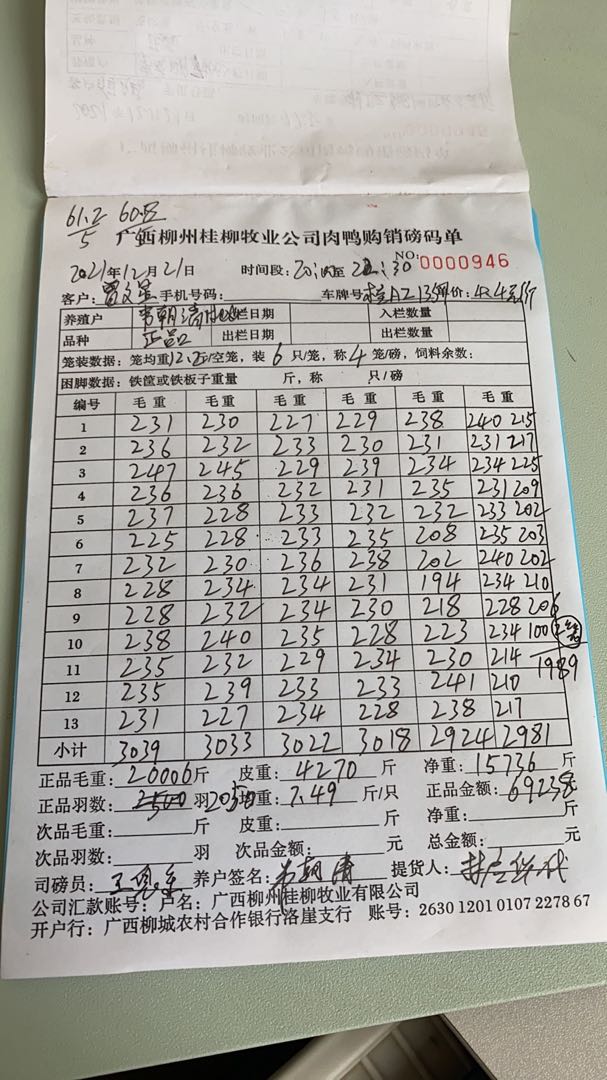 61.2 60只
5
广西柳州桂柳牧业公司肉鸭购销磅码单
NO: 0000946
2021年12月21日 时间段: 至 :30
客户: 手机号码: 车牌号 桂AZ135 单价: 4.4元/斤
养殖户 韦朝清 出栏日期 入栏数量
品种 正品 出栏日期 出栏数量
笼装数据: 笼均重12.2斤/空笼, 装6只/笼, 称4笼/磅, 饲料余数:
困脚数据: 铁筐或铁板子重量 斤, 称 只/磅
编号 毛重 毛重 毛重 毛重 毛重 毛重
1 231 230 227 229 238 240 215
2 236 232 233 230 231 231 217
3 247 245 229 239 234 234 225
4 236 236 232 231 235 231 209
5 237 228 233 232 232 233 202
6 225 228 233 235 208 235 203
7 232 230 236 238 202 240 202
8 228 234 234 231 194 234 210
9 228 232 234 230 218 228 206
10 238 240 235 228 223 234 100
11 235 232 229 234 230 214 1989
12 235 239 233 233 241 210
13 231 227 234 228 238 217
小计 3039 3033 3022 3018 2924 2981
正品毛重: 20006斤 皮重: 4270斤 净重: 15736斤
正品羽数: 羽 2050 重: 7.49斤/只 正品金额: 69238元
次品毛重: 斤 皮重: 斤 净重: 斤
次品羽数: 羽 次品金额: 元 总金额: 元
司磅员: 养户签名: 韦朝清 提货人:
公司汇款账号: 户名: 广西柳州桂柳牧业有限公司
开户行: 广西柳城农村合作银行洛崖支行 账号: 2630 1201 0107 2278 67